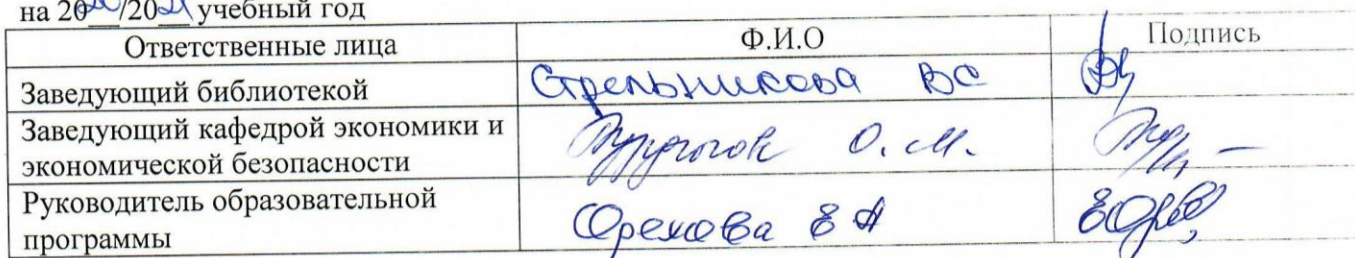 на 2020/2021 учебный год
Ответственные лица Ф.И.О Подпись
Заведующий библиотекой Стрельникова ВС
Заведующий кафедрой экономики и
экономической безопасности О.М.
Руководитель образовательной
программы Орехова Е А